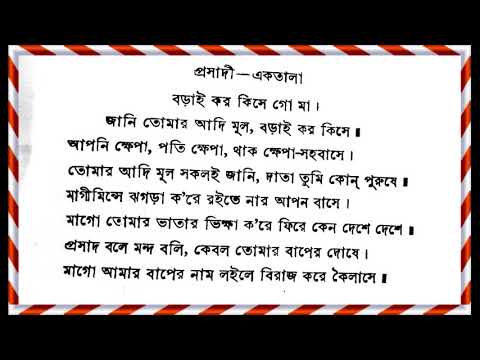 প্রসাদী—একতালা
বড়াই কর কিসে গো মা।
জানি তোমার আদি মূল, বড়াই কর কিসে॥
আপনি ক্ষেপা, পতি ক্ষেপা, থাক ক্ষেপা-সহবাসে।
তোমার আদি মূল সকলই জানি, দাতা তুমি কোন্ পুরুষে॥
মাগীমিন্সে ঝগড়া ক'রে রইতে নার আপন বাসে।
মাগো তোমার ভাতার ভিক্ষা ক'রে ফিরে কেন দেশে দেশে॥
প্রসাদ বলে মন্দ বলি, কেবল তোমার বাপের দোষে।
মাগো আমার বাপের নাম লইলে বিরাজ করে কৈলাসে॥